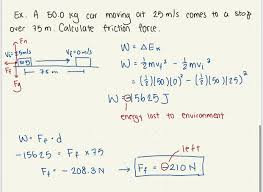 Ex. A 50.0 kg car moving at 25 m/s comes to a stop
over 75 m. Calculate friction force.
Fn
Vi=25m/s
Vf=0m/s
50
Ff
75 m
Fg
W = ΔEk
W = ½mvf² - ½mvi²
= (½)(50)(0)² - (½)(50)(25)²
W = -15625 J
energy lost to environment
W = Ff · d
-15625 = Ff × 75
Ff = -208.3 N
→ Ff = -210 N
left